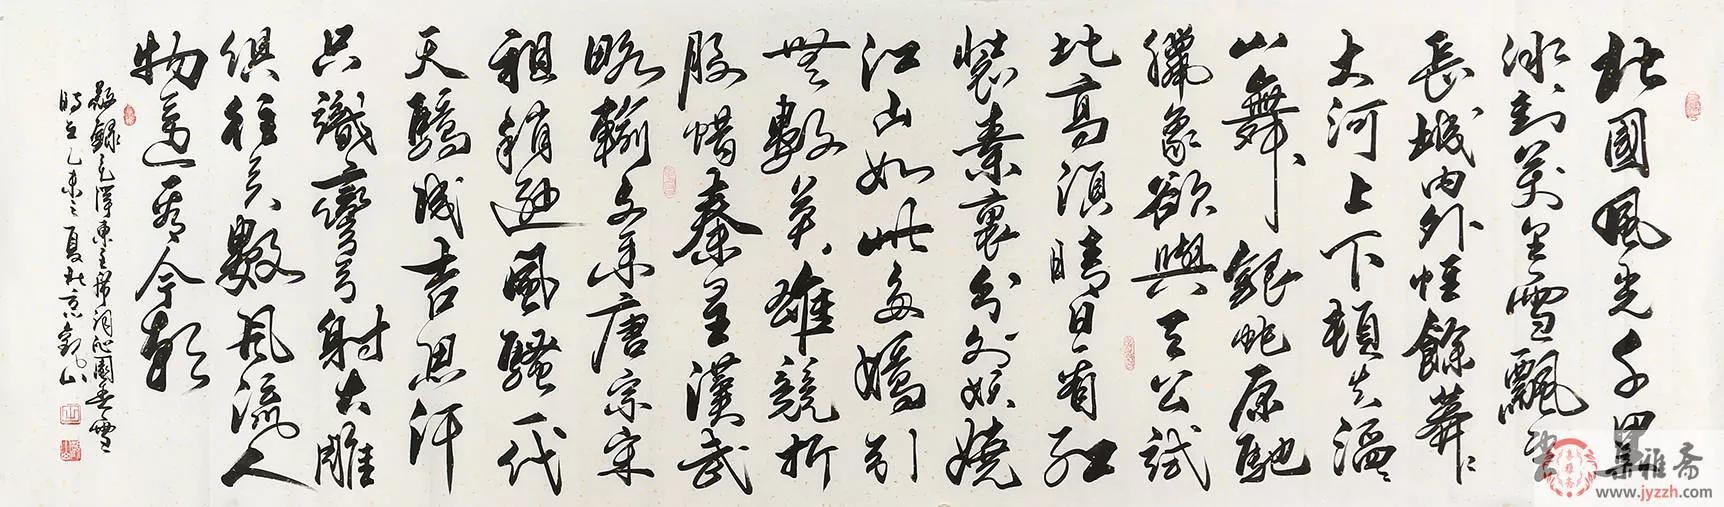 北國風光千里
冰封萬里雪飄望
長城内外惟餘莽〻
大河上下頓失滔〻
山舞銀蛇原馳
臘象欲與天公試
比高須晴日看紅
裝素裹分外妖嬈
江山如此多嬌引
無數英雄競折
腰惜秦皇漢武
略輸文采唐宗宋
祖稍遜風騷一代
天驕成吉思汗
只識彎弓射大雕
俱往矣數風流人
物還看今朝
敬錄毛澤東主席詞沁園春雪
時在乙未之夏於京觀山
集雅斋
www.jyzzh.com